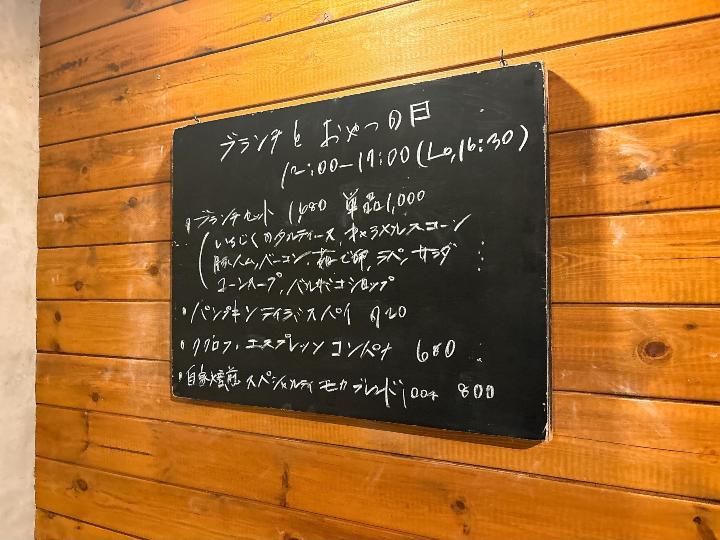 ブランチと おやつの日
12:00-17:00(Lo,16:30)
ブランチセット 1680 単品1,000
(いちじくのタルティーヌ、キャラメルスコーン
豚ハム、ベーコン、 ラペ、サラダ
コーンスープ、バルサミコシロップ
パンプキン スパイ 720
ククロフ、エスプレッソ コンパナ 680
自家焙煎 スペシャルティ モカ ブレンド 100g 800